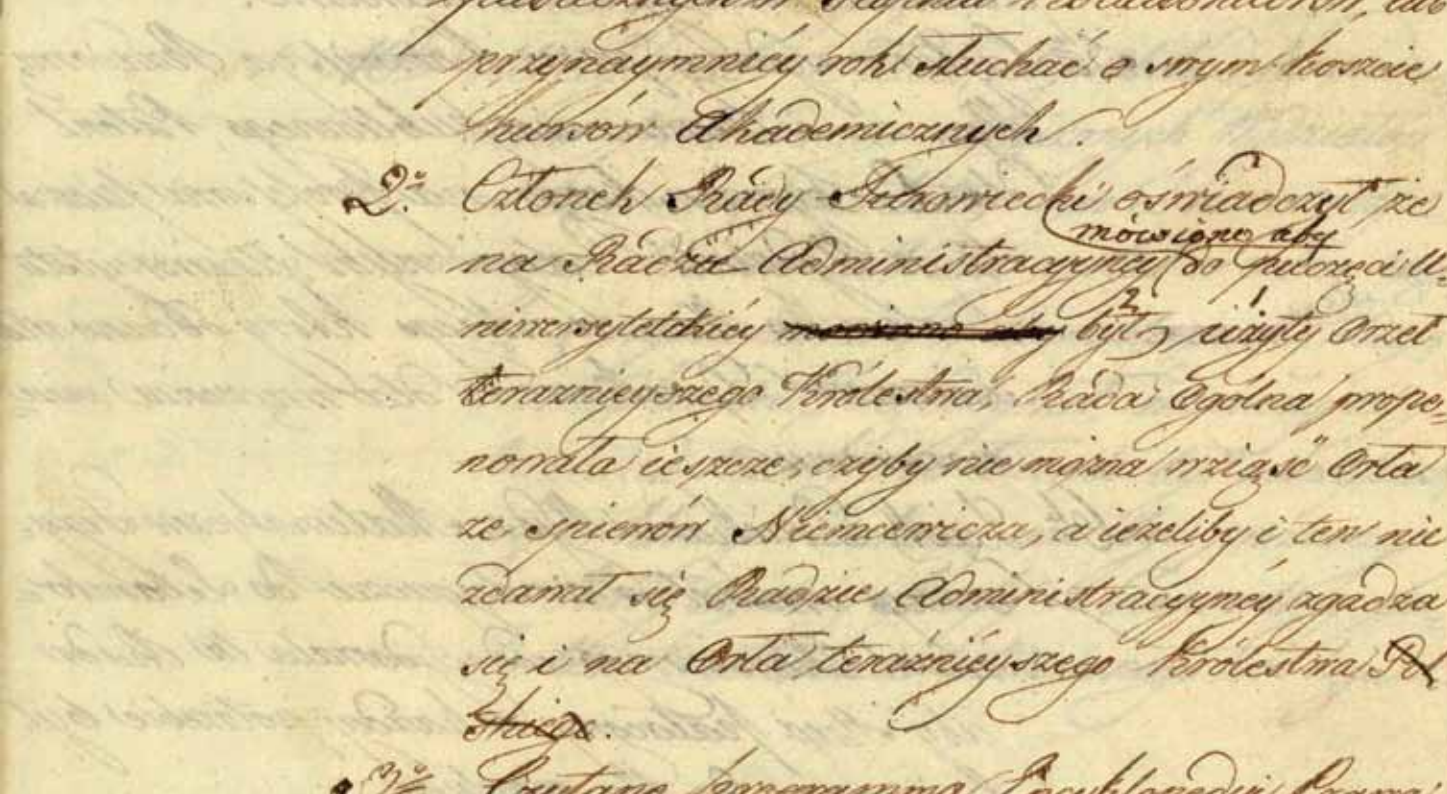 przynaymnićy rok słuchać o swym koszcie
kursów Akademicznych.
2º Członek Rady Surowiecki oświadczył że
mówiono aby
na Radzie Administracyyney do pieczęci U-
2 1
niwersyteckićy mówiono aby był użyty Orzeł
teraznieyszego Królestwa, Rada Ogólna propo-
nowała ieszcze, czyby nie można wziąść Orła
ze spiewów Niemcewicza, a ieżeliby i ten nie
zdawał się Radzie Administracyynéy zgadza
się i na Orła teraźnićyszego Królestwa Pol
skiego.
3º Czytano programma Encyklopedyi Prawa